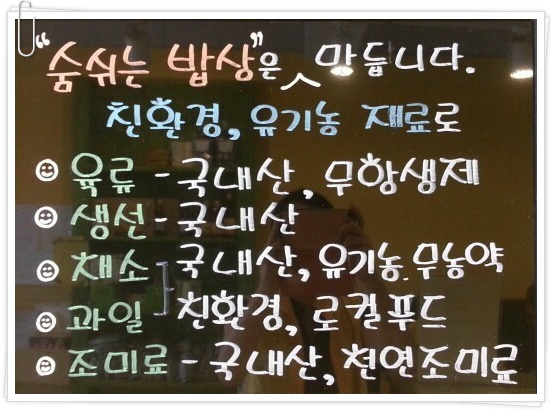 "숨쉬는 밥상"은 만듭니다.
친환경, 유기농 재료로
육류 - 국내산, 무항생제
생선 - 국내산
채소 국내산, 유기농, 무농약
과일 친환경, 로컬푸드
조미료 - 국내산, 천연조미료